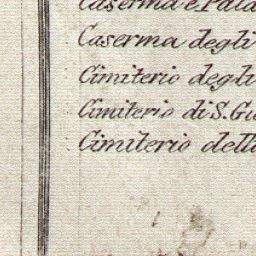 Caserma e Pala
Caserma degli
Cimiterio degli
Cimiterio di S. Gi
Cimiterio dell